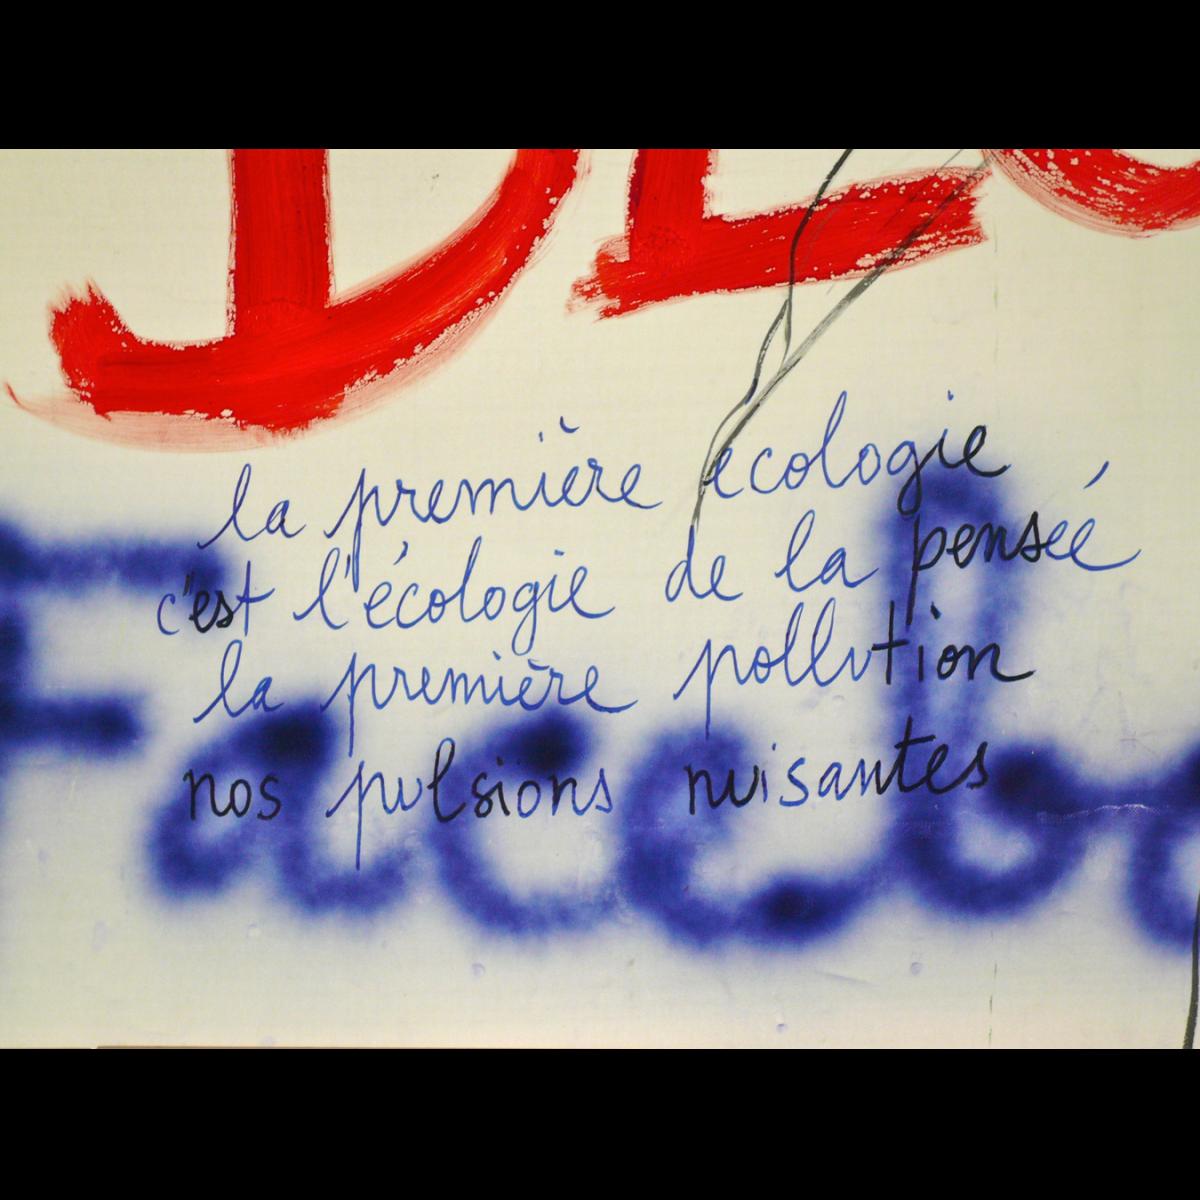 la première écologie
c'est l'écologie de la pensée
la première pollution
nos pulsions nuisantes